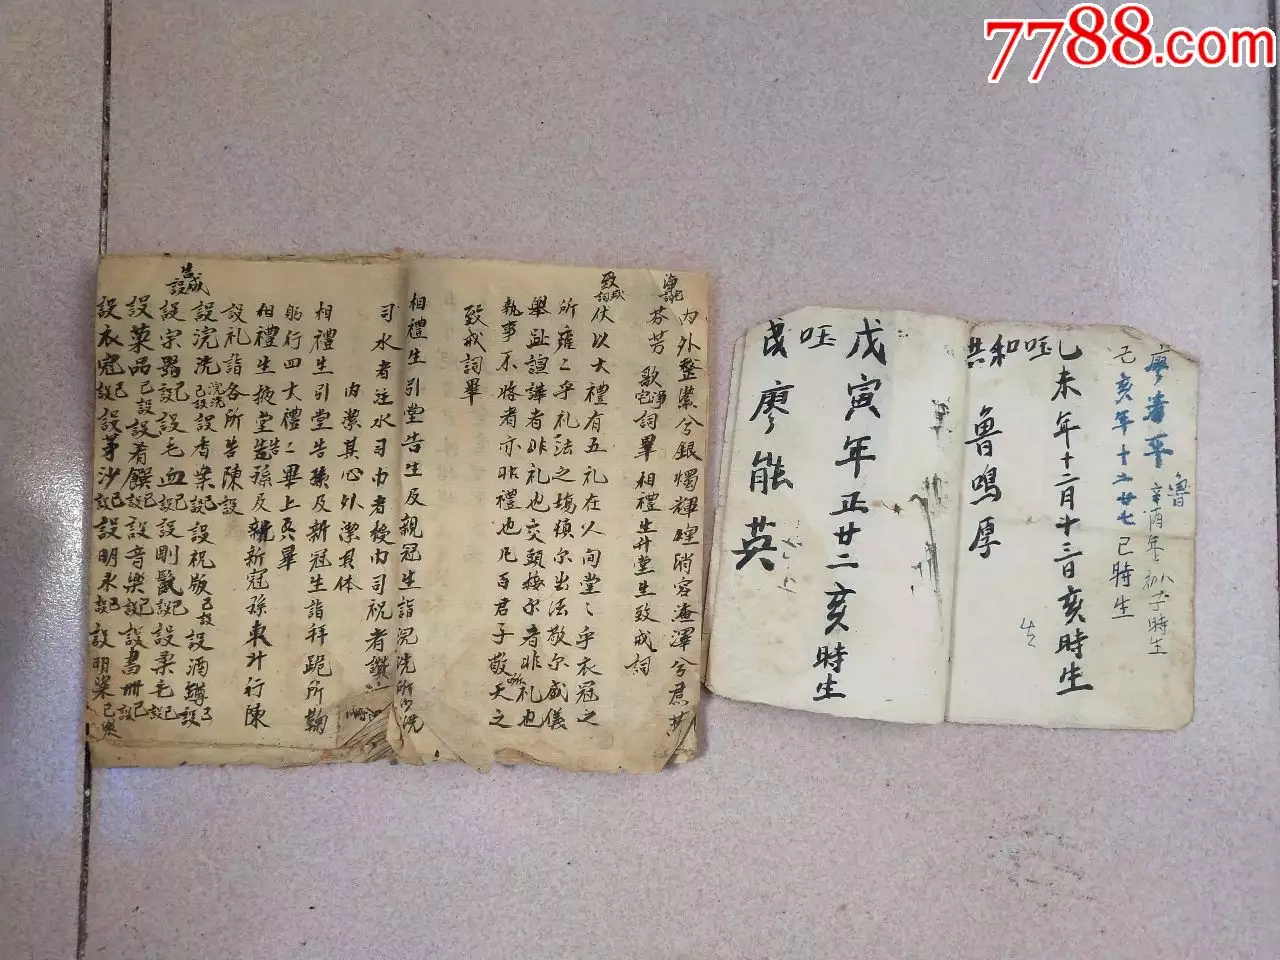 7788.com
内外整肅兮銀燭輝煌消容海渾兮君其
芬芳 歌 詞畢相禮生升堂生致戒詞
致戒詞 伏以大禮有五礼在人间堂〻乎衣冠之
所雍〻乎礼法之塲順尔出法敬尔威儀
舉趾諠譁者非礼也交頭接尔者非礼也
執事不恪者亦非禮也凡百君子敬天之
致戒詞畢
相禮生引堂告生及親冠生詣浣洗所浣
司水者注水司巾者授巾司祝者讚
内潔其心外潔其体
相禮生引堂告孫及新冠生詣拜跪所鞠
躬行四大禮〻畢上
相禮生掖堂告孫及新冠孫
設礼詣各所告陳設
告成設
設浣洗 浣洗已設 設香案已設 設祝版已設 設酒罇已設
設宗器已設 設毛血已設 設剛鬣已設 設柔毛已設
設菓品已設 設肴饌已設 設音樂已設 設書冊已設
設衣冠已設 設茅沙已設 設明水已設 設明粢已
廖 平
己亥年十二廿七巳時生
魯
辛酉年 子時生
乙未年十二月十三日亥時生
共和
魯鳴厚
生
戊寅年正廿二亥時生
民 廖能英